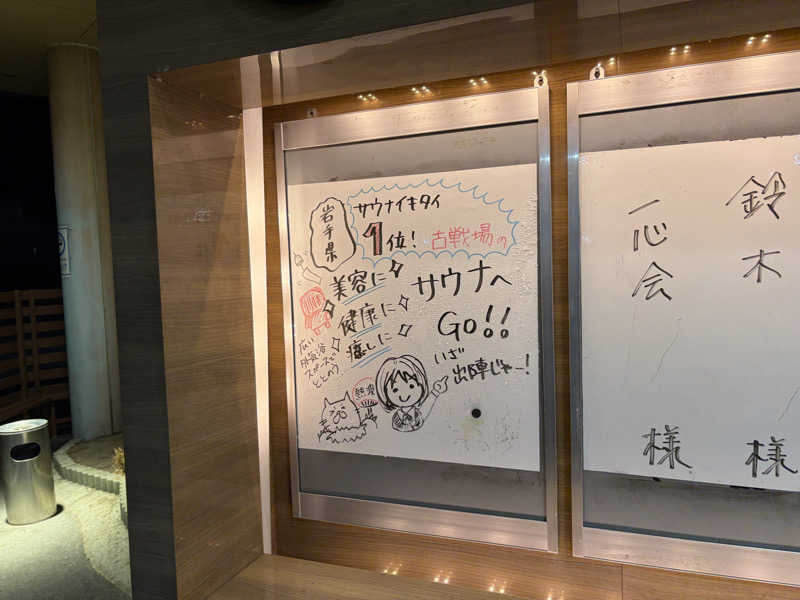 岩手県
サウナイキタイ
1位！古戦場の
美容に
健康に
癒しに
サウナへ
GO!!
いざ
出陣じゃー！
広い
外気浴
スペースで
ととのう
熱波
一心会
様
鈴木
様